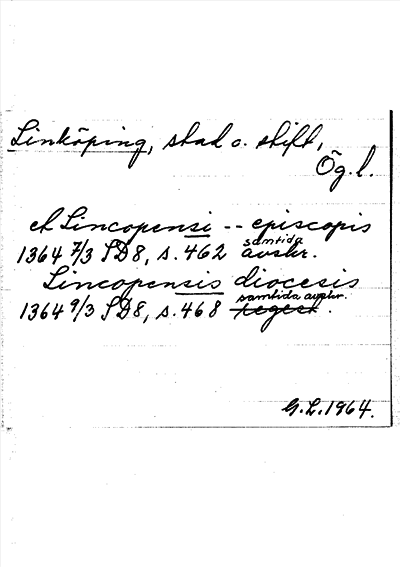 Linköping, stad o. stift,
Ög. l.
et Lincopensi -- episcopis
1364 7/3 SD8, s. 462 samtida avskr.
Lincopensis diocesis
1364 9/3 SD8, s. 468 samtida avskr. regest.
G.L. 1964.